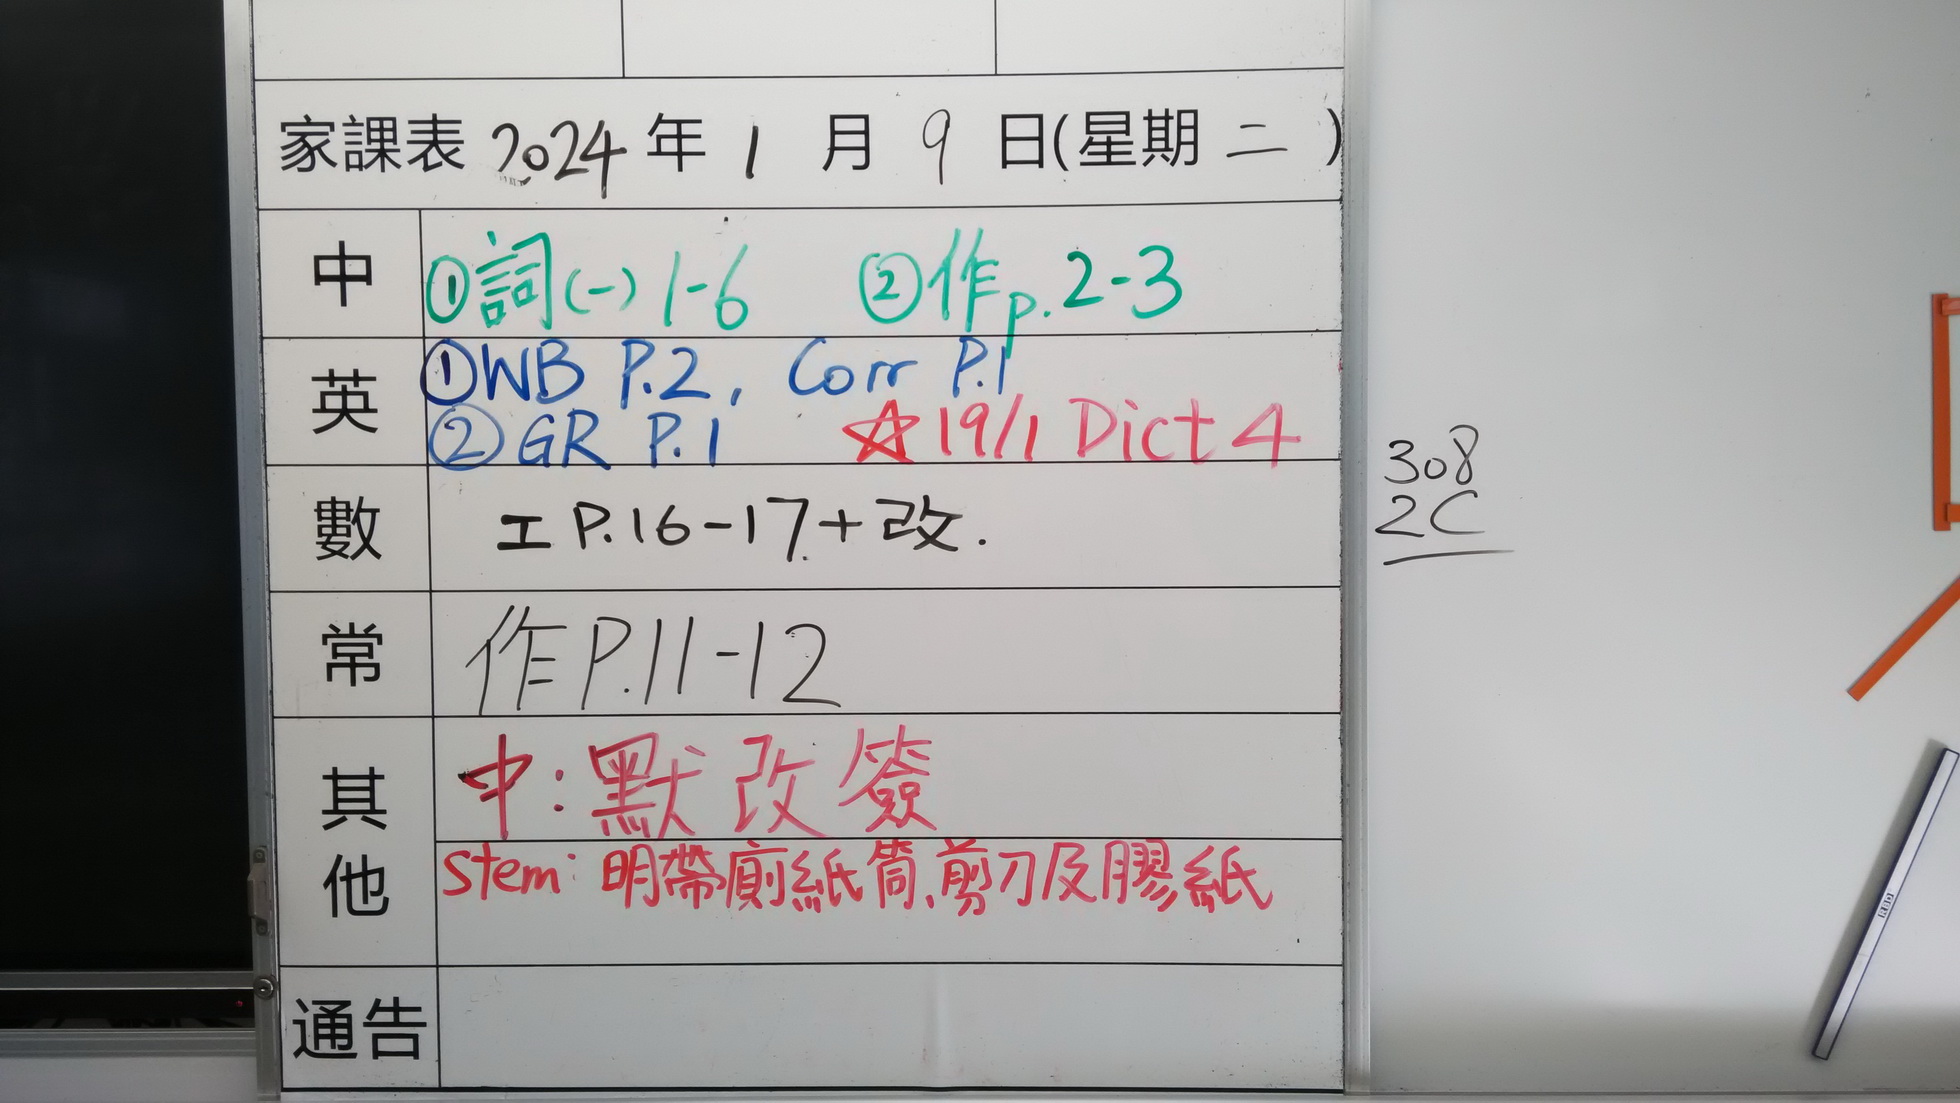 家課表 2024 年 1 月 9 日(星期 二 )
中 ①詞(一) 1-6 ②作p. 2-3
英 ①WB P.2, Corr P.1
②GR P.1 ☆19/1 Dict 4
數 工 P.16-17+改.
常 作 P.11-12
其他 中:默改簽
stem: 明帶廁紙筒、剪刀及膠紙
通告
308
2C